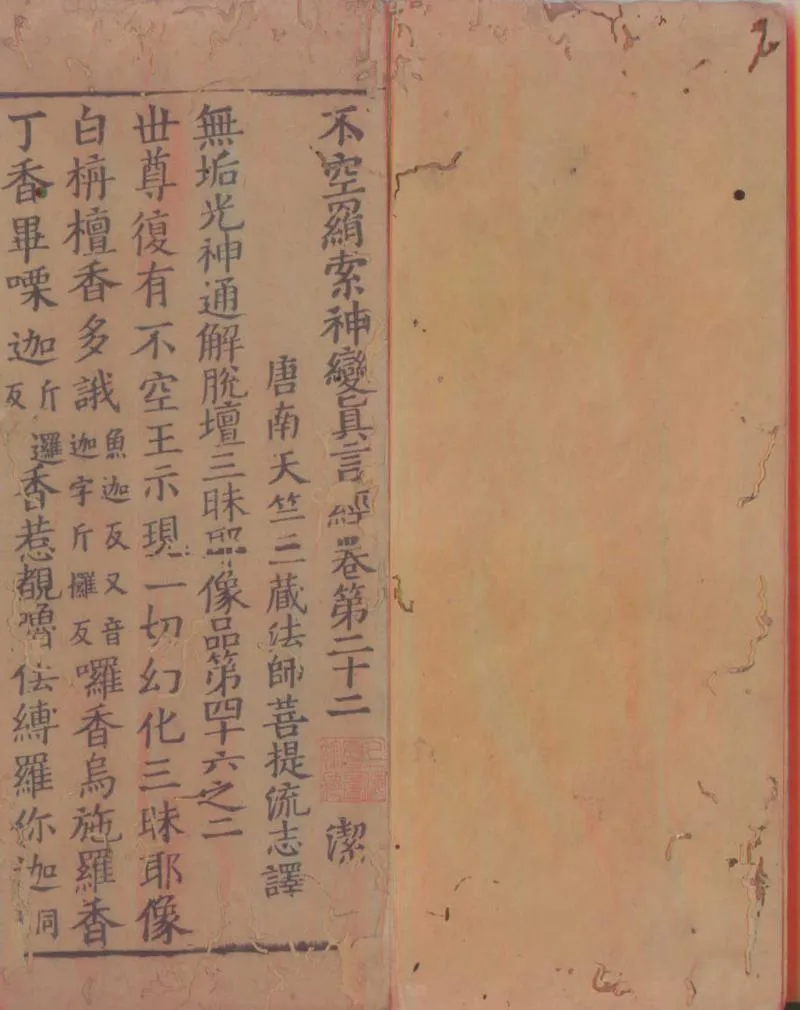 不空羂索神變真言經卷第二十二 潔
唐南天竺三藏法師菩提流志譯
無垢光神通解脫壇三昧耶像品第四十六之二
世尊復有不空王示現一切幻化三昧耶像
白栴檀香多誐魚迦反又音迦字斤攞反囉香烏施羅香
丁香畢㗚迦斤邏反香惹覩嚕佉縛羅你迦同